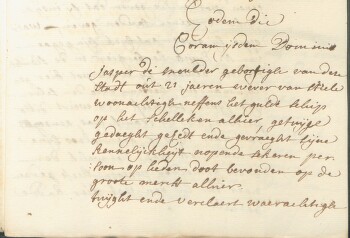 Eodem die
Coram ijsdem Dominis
Jasper de meulder geborttigh van deser
stadt out 21 jaeren wever van stiele
woonachtigh neffens het gulde schip
op het Schelleken alhier, getuijge
gedaeght gehoort ende gevraeght sijne
kennelijckheijt nopende sekeren per
soon op heden doot bevonden op de
groote merckt alhier
tuijght ende verclaert waerachtigh